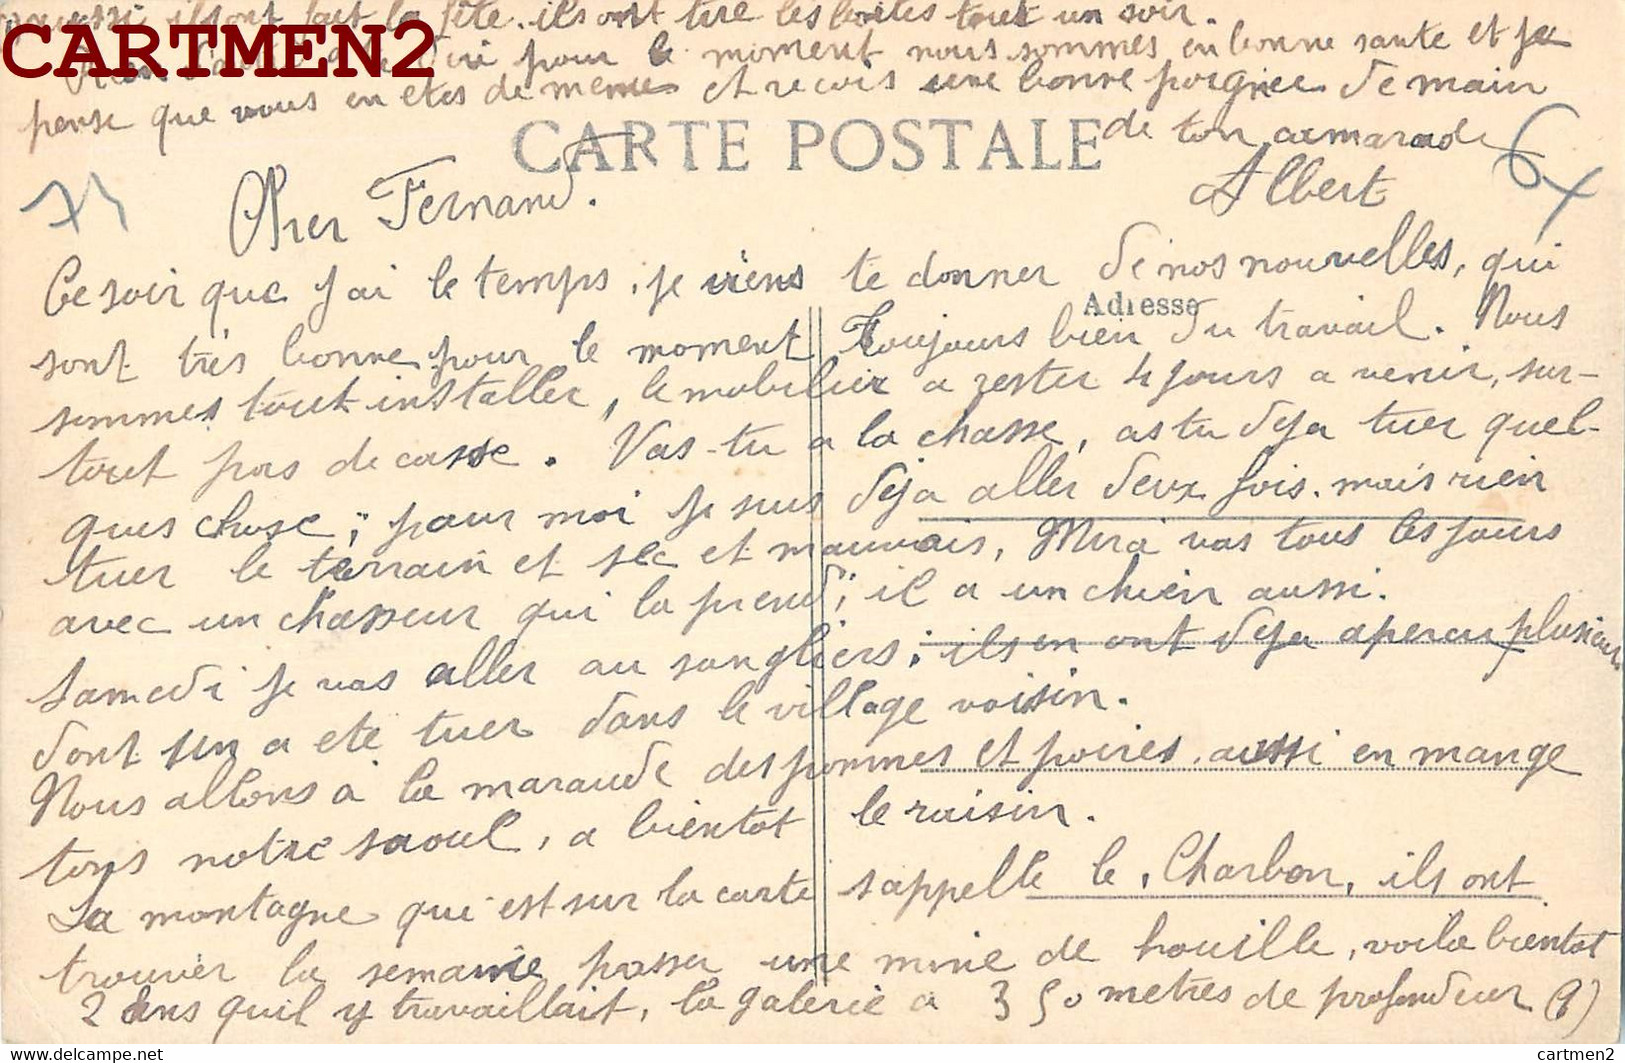 aussi ils ont fait la fête. ils ont tire les boites tout un soir.
CARTMEN2
pour le moment nous sommes en bonne sante et je
pense que vous en etes de memes et recois une bonne poignee de main
de ton camarade
CARTE POSTALE
Albert
Cher Fernand.
Ce soir que j'ai le temps, je viens te donner de nos nouvelles, qui
Adresse
sont très bonne pour le moment Toujours bien du travail. Nous
sommes tout installer, le mobilier a rester 4 jours a venir, sur-
tout pas de casse. Vas-tu a la chasse, as tu deja tuer quel-
ques chose, pour moi je suis deja aller deux fois. mais rien
tuer le terrain et sec et mauvais, Mira vas tous les jours
avec un chasseur qui la prend; il a un chien aussi.
Samedi je vas aller au sangliers; ils en ont deja apercu plusieurs
dont un a ete tuer dans le village voisin.
Nous allons a la maraude des pommes et poires, aussi en mange
tous notre saoul, a bientot le raisin.
La montagne qui est sur la carte sappelle le Charbon, ils ont
trouver la semaine passer une mine de houille, voila bientot
2 ans quil y travaillait, la galerie a 350 metres de profondeur
cartmen2